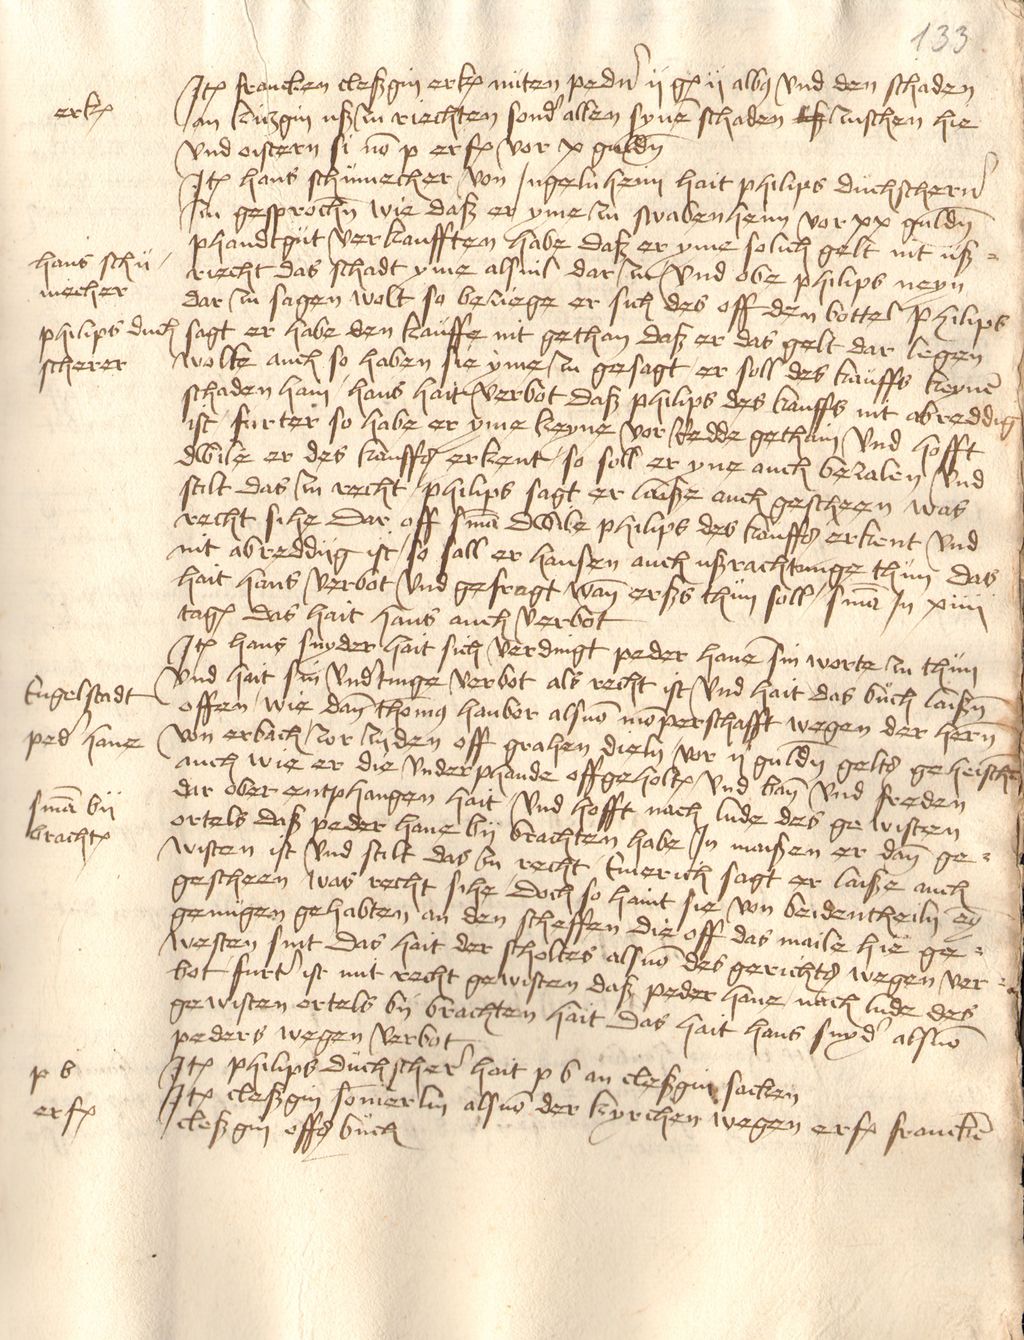 133
erkꝭ
Itꝭ francken cleßgin erkꝭ niiten pedn' ij gꝭ ij albꝰ vnd den schaden
an kiczgin ußzurichten sond' allen syne schaden zuschen hie
vnd oistern si nō p erfꝭ vor x guldn̄
Itꝭ hans schumecher von Ingelnheim hait philips duchschern'
zu gesprochn̄ wie daß er yme zu swabenheim vor xx guldn̄
hans schu-
mecher
philips duch
scherer
phandtgut verkaufften habe daß er yme solich gelt nit uß-
riecht das schadt yme alsuil dar zu vnd obe philips neyn
dar zu sagen wolt so beziege er sich des off den bottel philips
sagt er habe den kauffe nit gethan daß er das gelt dar legen
wolte auch so haben sie yme zu gesagt er soll des kauffs keynē
schaden han hans hait verbot daß philips des kauffs nit abreddig
ist furter so habe er yme keyne vor redde gethain vnd hofft
dwile er des kauffs erkent so soll er yne auch bezalen vnd
stilt das zu recht philips sagt er laiße auch gescheen was
recht sihe dar off sniā dwile philips des kauffs erkent vnd
nit abreddiig ist so sall er hansen auch ußrachtunge thun das
hait hans verbot vnd gefragt wan̄ erß thun soll sniā In xiiij
tagꝭ das hait hans auch verbot
Itꝭ hans snyder hait sich verdingt peder hanē sin worte zu thun
Engelstadt
ped' hane
vnd hait sin vnd'tinge verbot als recht ist vnd hait das buch laißn̄
offen wie dan̄ thomꝰ haubor alsnō momperschafft wegen der hern̄
von erbach zor zyden off grahen dieln vor ij guldn̄ gelts geheischn̄
auch wie er die vnderphande offgeholtꝭ vnd ban̄ vnd freden
sniā bij
brachtꝭ
dar ober entphangen hait vnd hofft nach lude des gewisten
ortels daß peder hane bij brachten habe In maißen er dan̄ ge-
wisten ist vnd stilt das zu recht Emerich sagt er laiße auch
gescheen was recht sihe doch so haint sie von beidentheiln eȳ
genugen gehabten an den scheffen die off das maile hie ge-
westen sint das hait der scholtes alsnō des gerichts wegen ver-
bot furt' ist mit recht gewisten daß peder hane nach lude des
gewisten ortels bij brachten hait das hait hans snyd' alsnō
peders wegen verbot
p b
Itꝭ philips duchscher' hait p b an cleßgin sacken
erfꝭ
Itꝭ cleßgin somerlin alsnō der kyrchen wegen erfꝭ franckē
cleßgin offs buch